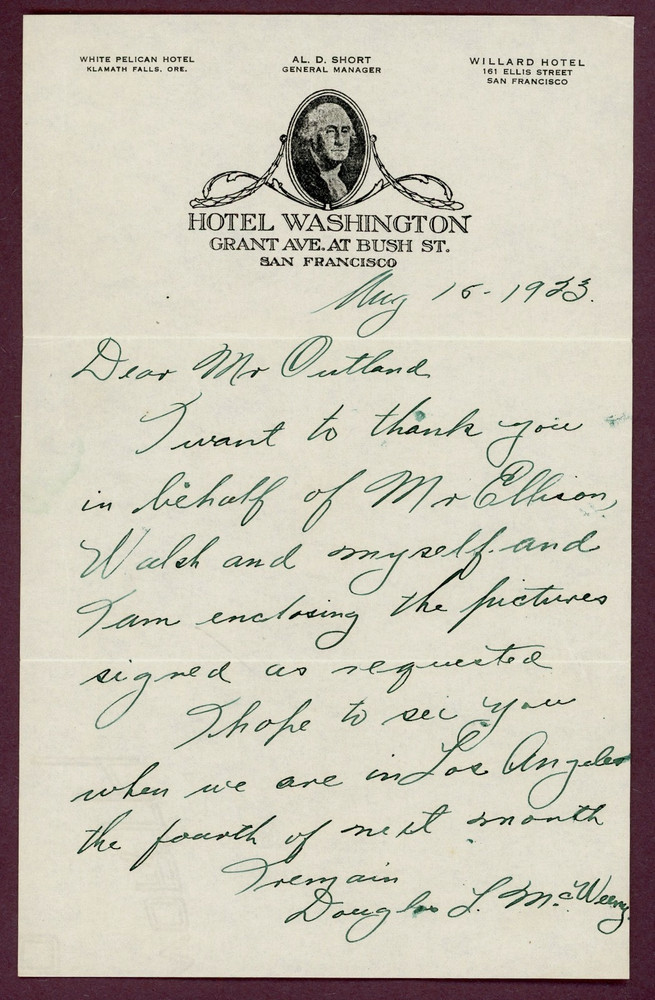 WHITE PELICAN HOTEL
KLAMATH FALLS, ORE.
AL. D. SHORT
GENERAL MANAGER
WILLARD HOTEL
161 ELLIS STREET
SAN FRANCISCO
HOTEL WASHINGTON
GRANT AVE. AT BUSH ST.
SAN FRANCISCO
Aug 15 - 1933.
Dear Mr Outland
I want to thank you
in behalf of Mr Ellison,
Walsh and myself. and
I am enclosing the pictures
signed as requested
I hope to see you
when we are in Los Angeles
the fourth of next month
I remain
Douglas L. McWeeny.